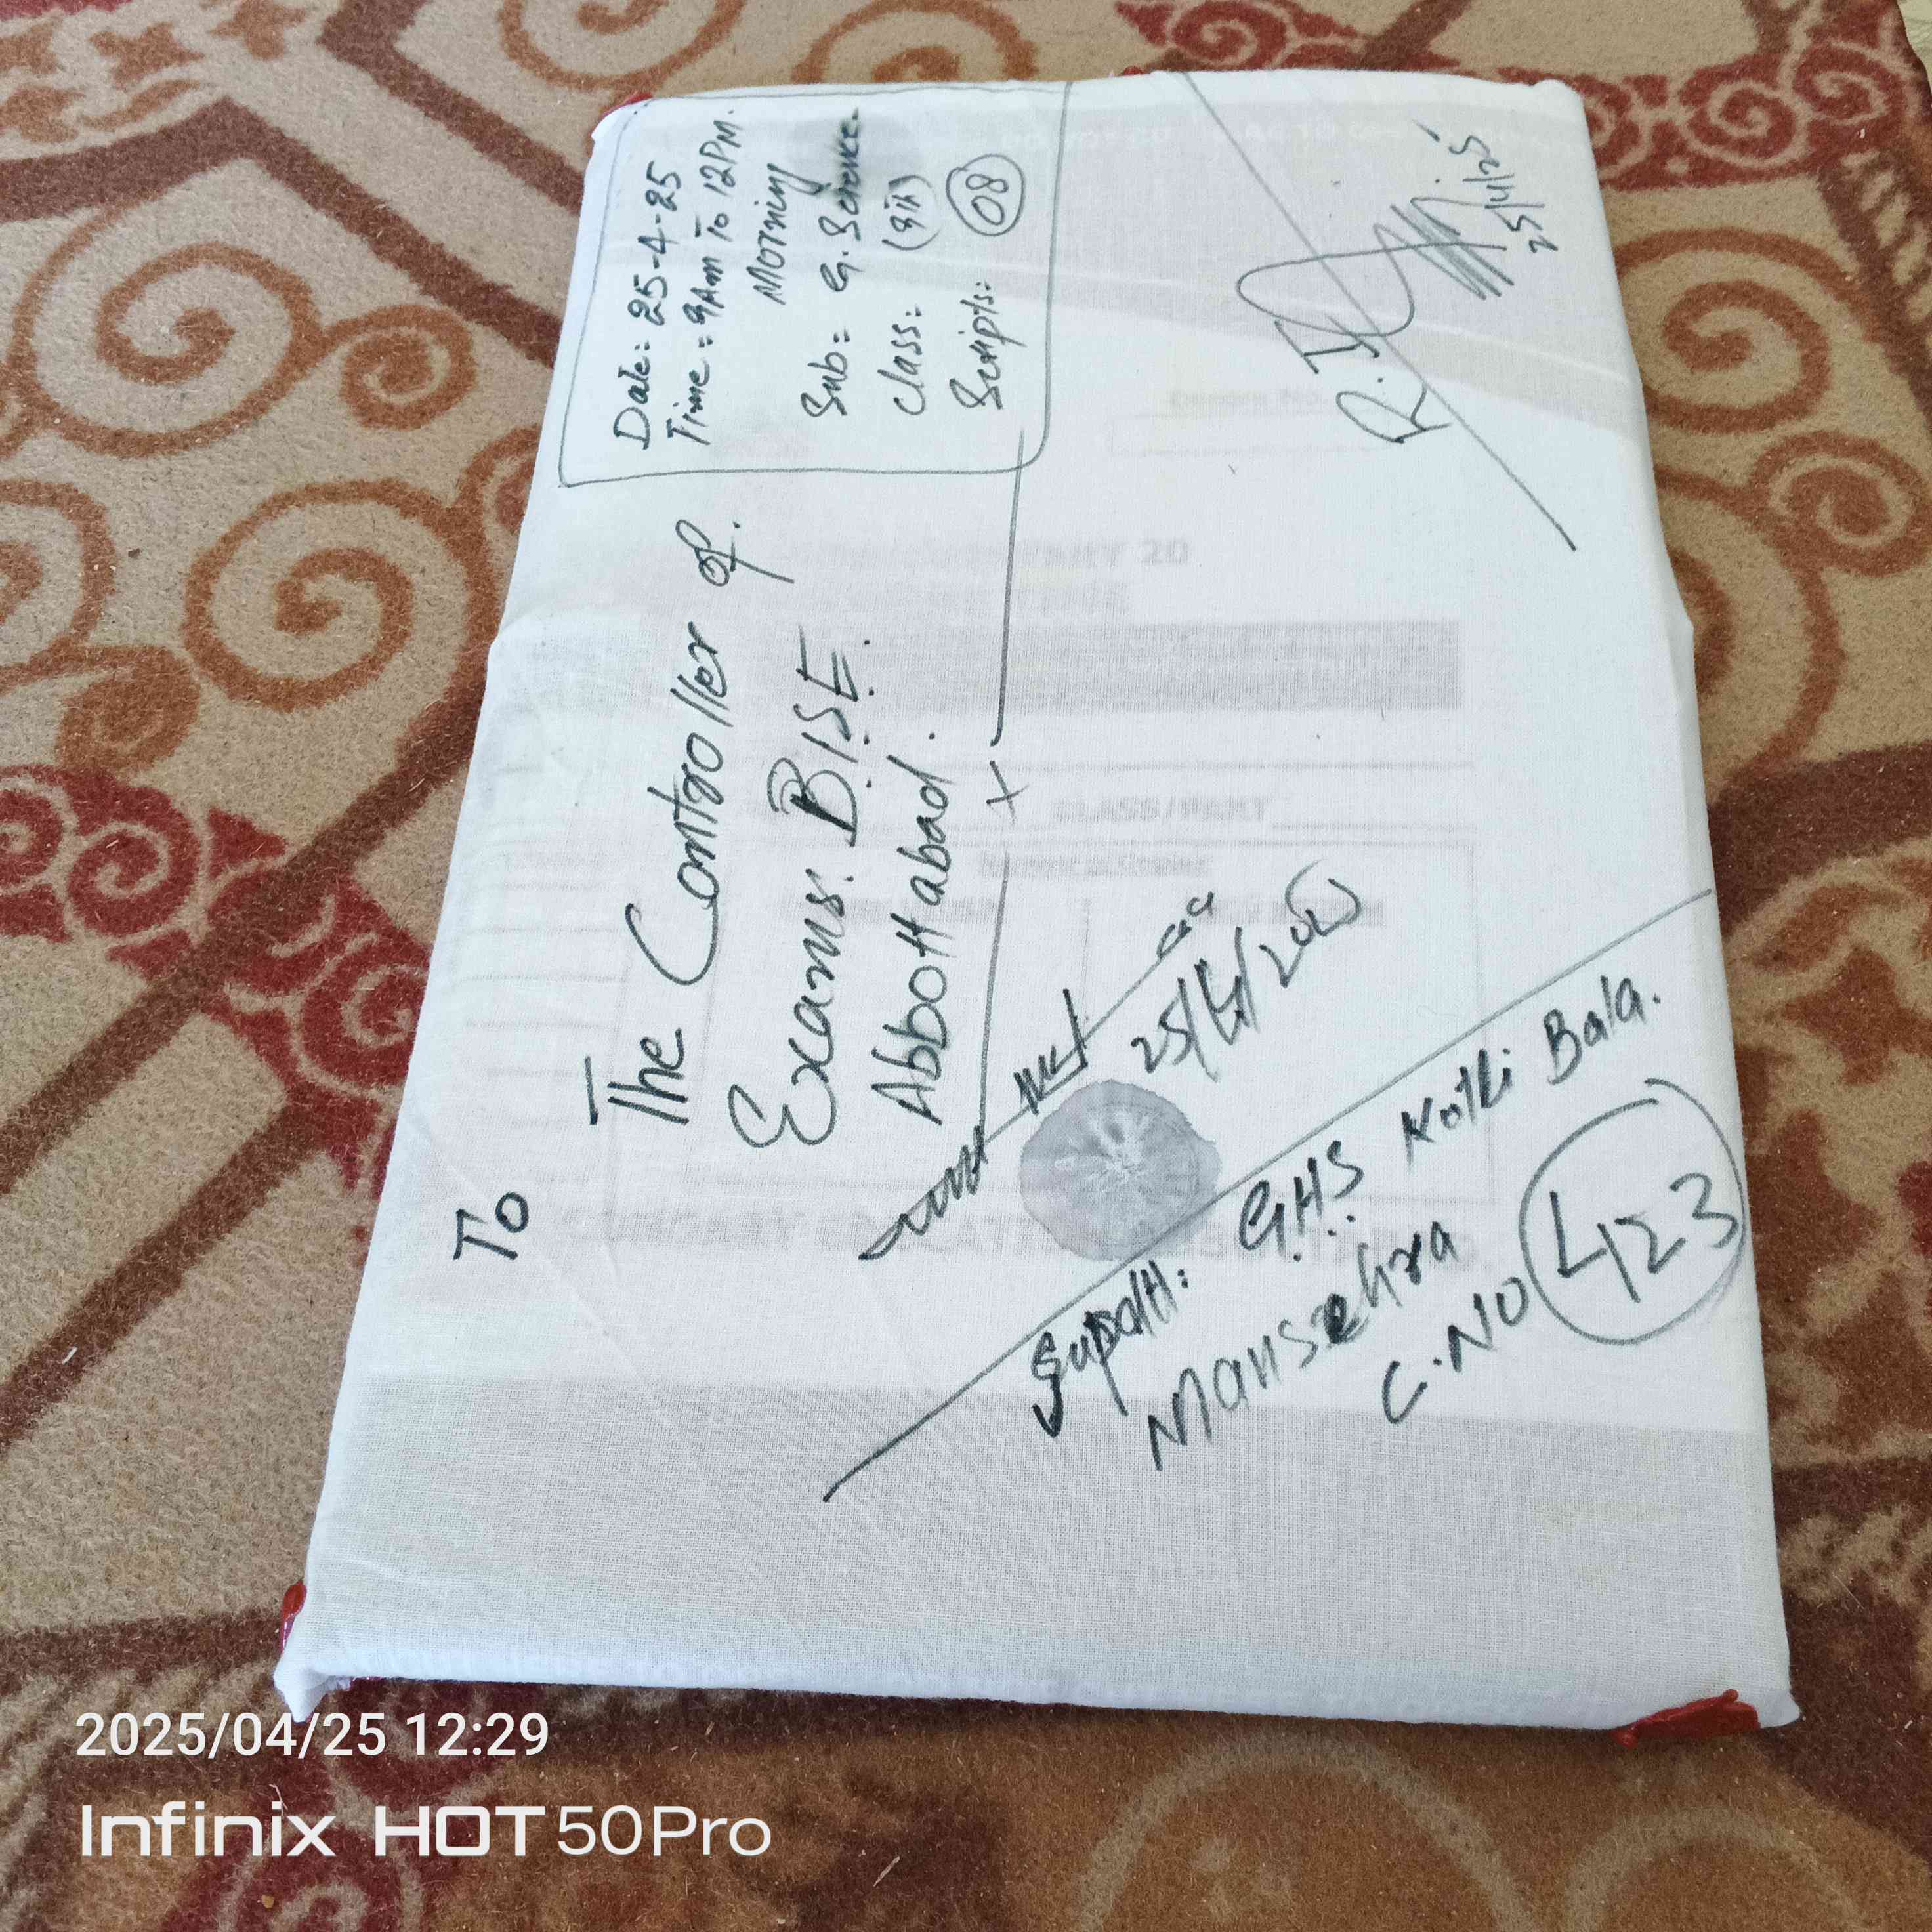 Date: 25-4-25
Time = 9Am To 12PM.
Morning
Sub = G. Science.
Class: (9th)
Scripts: 08
To
The Controller of
Exams. B.I.S.E.
Abbottabad.
25/4/2025
Supdtt: G.H.S Kotli Bala.
Mansehra
C.NO 423
R.I
25/4/25
PART 20
CLASS/PART
2025/04/25 12:29
Infinix HOT 50 Pro